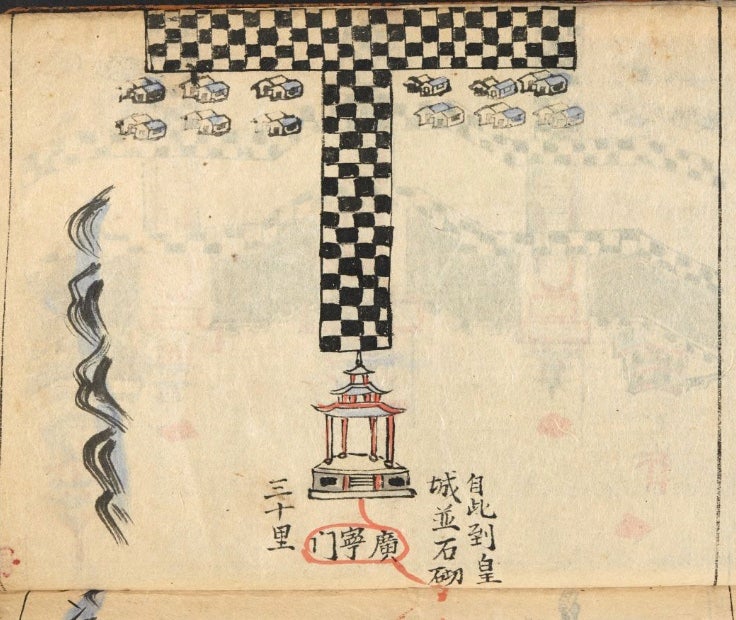 自此到皇
城並石砌
廣寧门
三十里